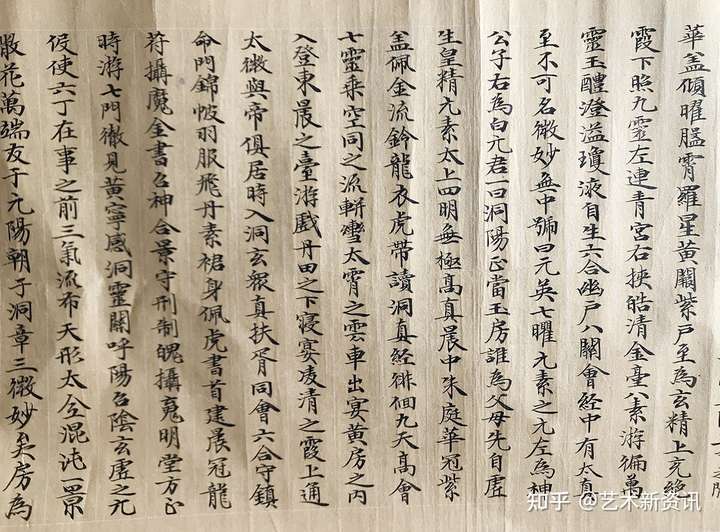 華盖傾曜朏霄羅星黄闕紫戶至為玄精上充絶
霞下照九靈左連青宫右挾皓清金臺八素游徧萬
靈玉醴澄溢瓊液自生六合幽戶八關會經中有太真
至不可名微妙無中號曰元英七曜元素之元左為神
公子右為白元君一曰洞陽正當玉房誰為父母先自虚
生皇精元素太上四明無極高真晨中朱庭華冠紫
盖佩金流鈴龍衣虎帶讀洞真經徘徊九天高會
七靈乘空同之流軿轡太霄之雲車出宴黄房之内
入登東晨之臺游戲丹田之下寢宴凌清之霞上通
太微與帝俱居時入洞玄衆真扶胥同會六合守鎮
命門錦帔羽服飛丹素裙身佩虎書首建晨冠龍
符攝魔金書召神合景守形制魄攝䰟明堂方正
時游七門徹見黄寧感洞靈關呼陽召陰玄虚之元
役使六丁在事之前三氣流布天形太混沌一景
散花萬端友于元陽朝于洞章三微妙矣房為
知乎 @艺术新资讯